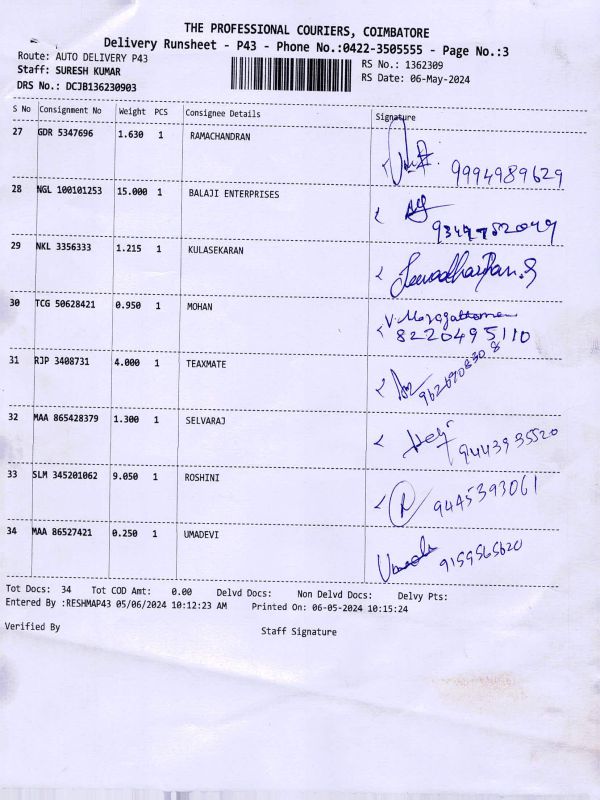 THE PROFESSIONAL COURIERS, COIMBATORE
Delivery Runsheet - P43 - Phone No.:0422-3505555 - Page No.:3
Route: AUTO DELIVERY P43
RS No.: 1362309
Staff: SURESH KUMAR
RS Date: 06-May-2024
DRS No.: DCJB136230903
S No Consignment No Weight PCS Consignee Details Signature
27 GDR 5347696 1.630 1 RAMACHANDRAN
9994989629
28 NGL 100101253 15.000 1 BALAJI ENTERPRISES
29 NKL 3356333 1.215 1 KULASEKARAN
30 TCG 50628421 0.950 1 MOHAN
8220495110
31 RJP 3408731 4.000 1 TEAXMATE
32 MAA 865428379 1.300 1 SELVARAJ
9443935520
33 SLM 345201062 9.050 1 ROSHINI
9445393061
34 MAA 86527421 0.250 1 UMADEVI
9159565620
Tot Docs: 34 Tot COD Amt: 0.00 Delvd Docs: Non Delvd Docs: Delvy Pts:
Entered By :RESHMAP43 05/06/2024 10:12:23 AM Printed On: 06-05-2024 10:15:24
Verified By Staff Signature